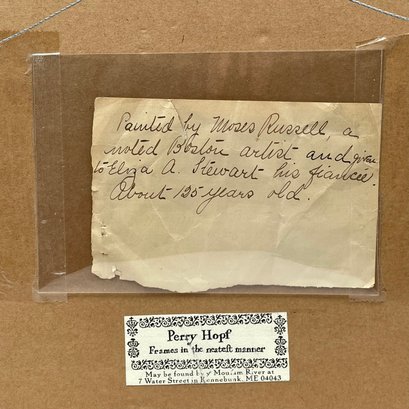 Painted by Moses Russell, a
noted Boston artist and given
to Eliza A. Stewart his fiancée.
About 125 years old.
Perry Hopf
Frames in the neatest manner
May be found by yᵉ Mousam River at
7 Water Street in Kennebunk, ME 04043